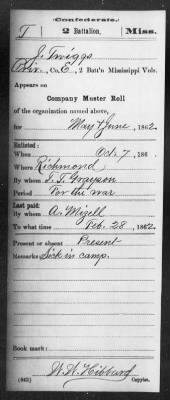 Confederate.
T 2 Battalion, Miss.
J. Twiggs
Priv., Co. E, 2 Batt'n Mississippi Vols.
Appears on
Company Muster Roll
of the organization named above,
for May & June, 1862.
Enlisted:
When Oct. 7, 186 .
Where Richmond
By whom T. T. Grayson
Period For the war
Last paid:
By whom A. Mizell
To what time Feb. 28, 1862.
Present or absent Present
Remarks: Sick in camp.
Book mark:
W. H. Hibbard
(642) Copyist.